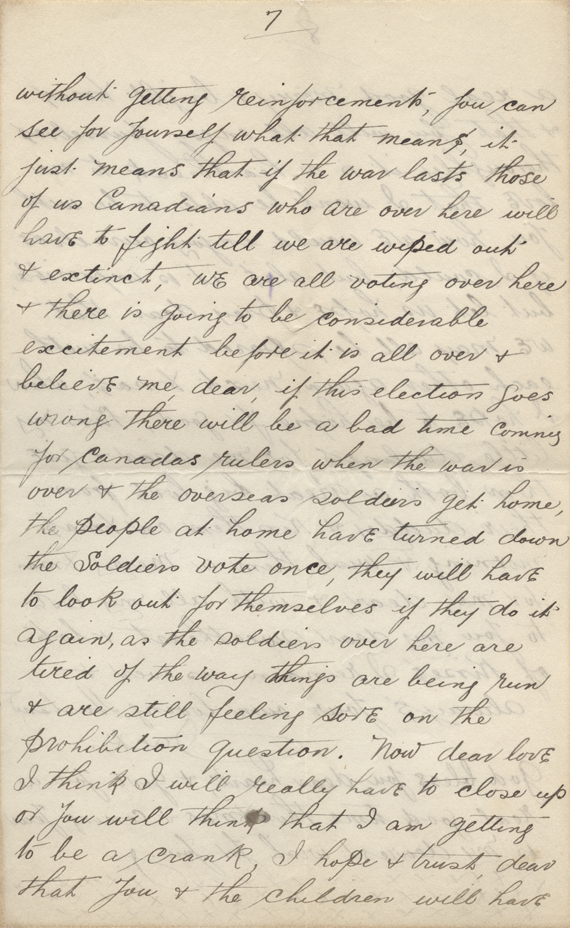 7
without getting reinforcements, you can
see for yourself what that means, it
just means that if the war lasts those
of us Canadians who are over here will
have to fight till we are wiped out
& extinct, we are all voting over here
& there is going to be considerable
excitement before it is all over &
believe me, dear, if this election goes
wrong there will be a bad time coming
for Canadas rulers when the war is
over & the overseas soldiers get home,
the people at home have turned down
the Soldiers vote once, they will have
to look out for themselves if they do it
again, as the soldiers over here are
tired of the way things are being run
& are still feeling sore on the
prohibition question. Now dear love
I think I will really have to close up
or you will think that I am getting
to be a crank, I hope & trust, dear
that you & the children will have